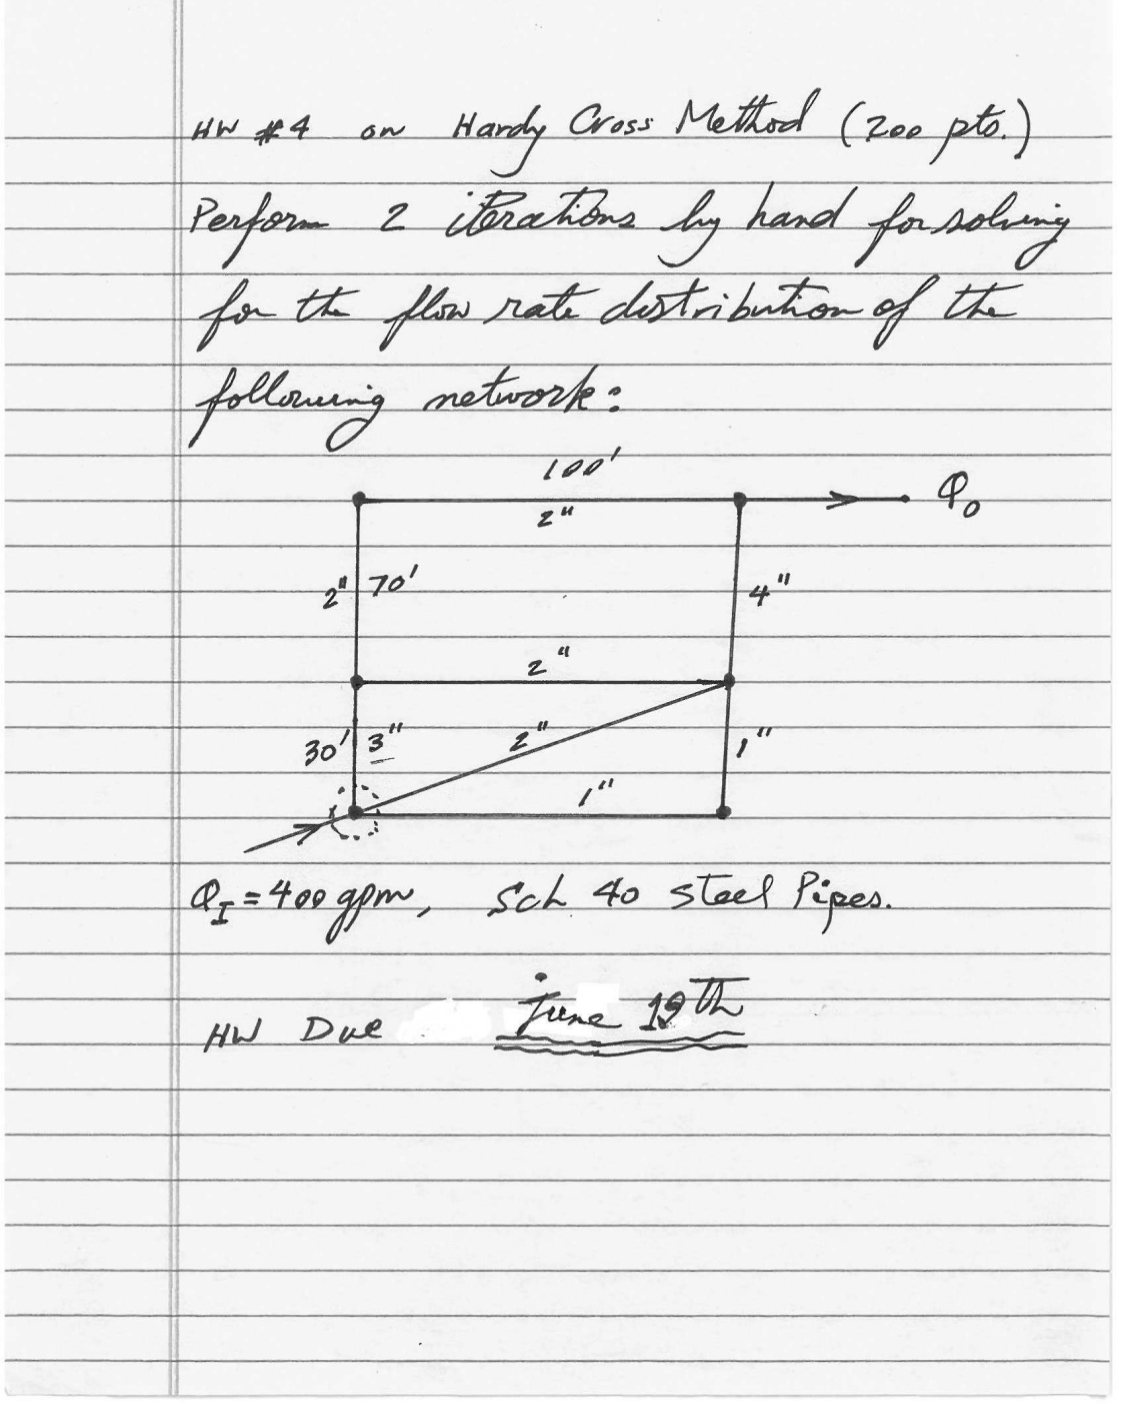 HW #4 on Hardy Cross Method (200 pts.)
Perform 2 iterations by hand for solving
for the flow rate distribution of the
following network:
100'
2"
Q₀
2" 70'
4"
2"
30' 3"
2"
1"
1"
Q_I = 400 gpm, Sch 40 Steel Pipes.
HW Due June 19th